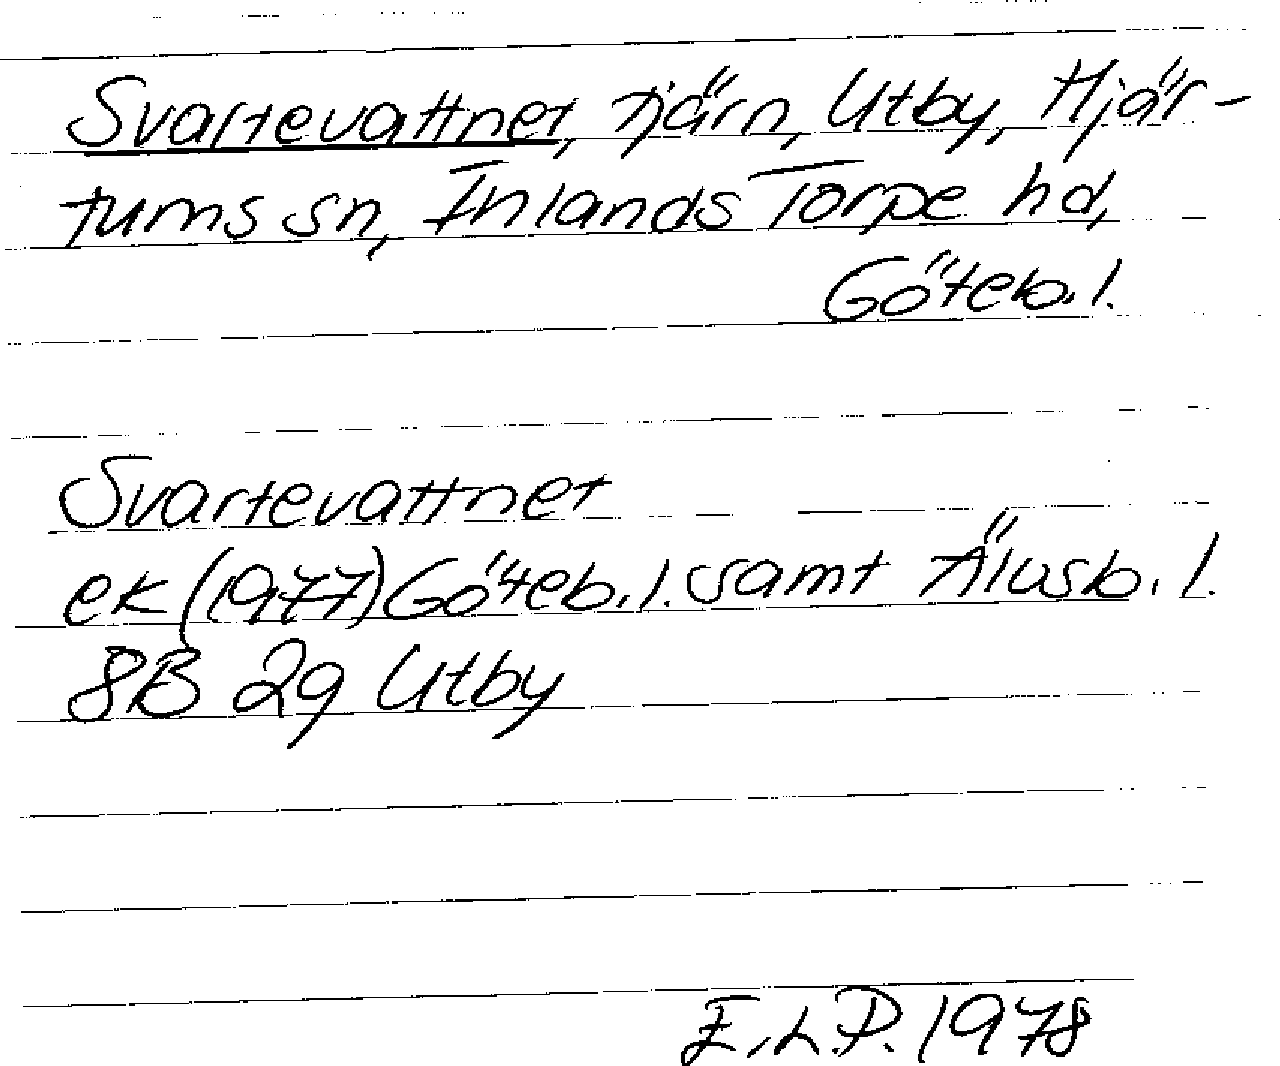 Svartevattnet, tjärn, Utby, Hjär-
tums sn, Inlands Torpe hd,
Göteb.l.
Svartevattnet
ek (1977) Göteb.l. samt Älvsb.l.
8B 2g Utby
E.L.P. 1978